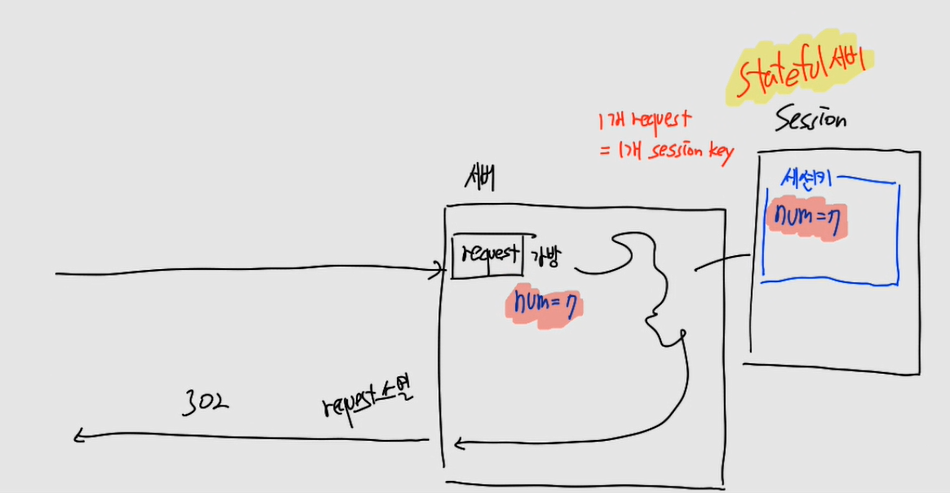 Stateful 서버
Session
1개 request
= 1개 session key
세션키
num=7
서버
request 가방
num=7
302
request 소멸